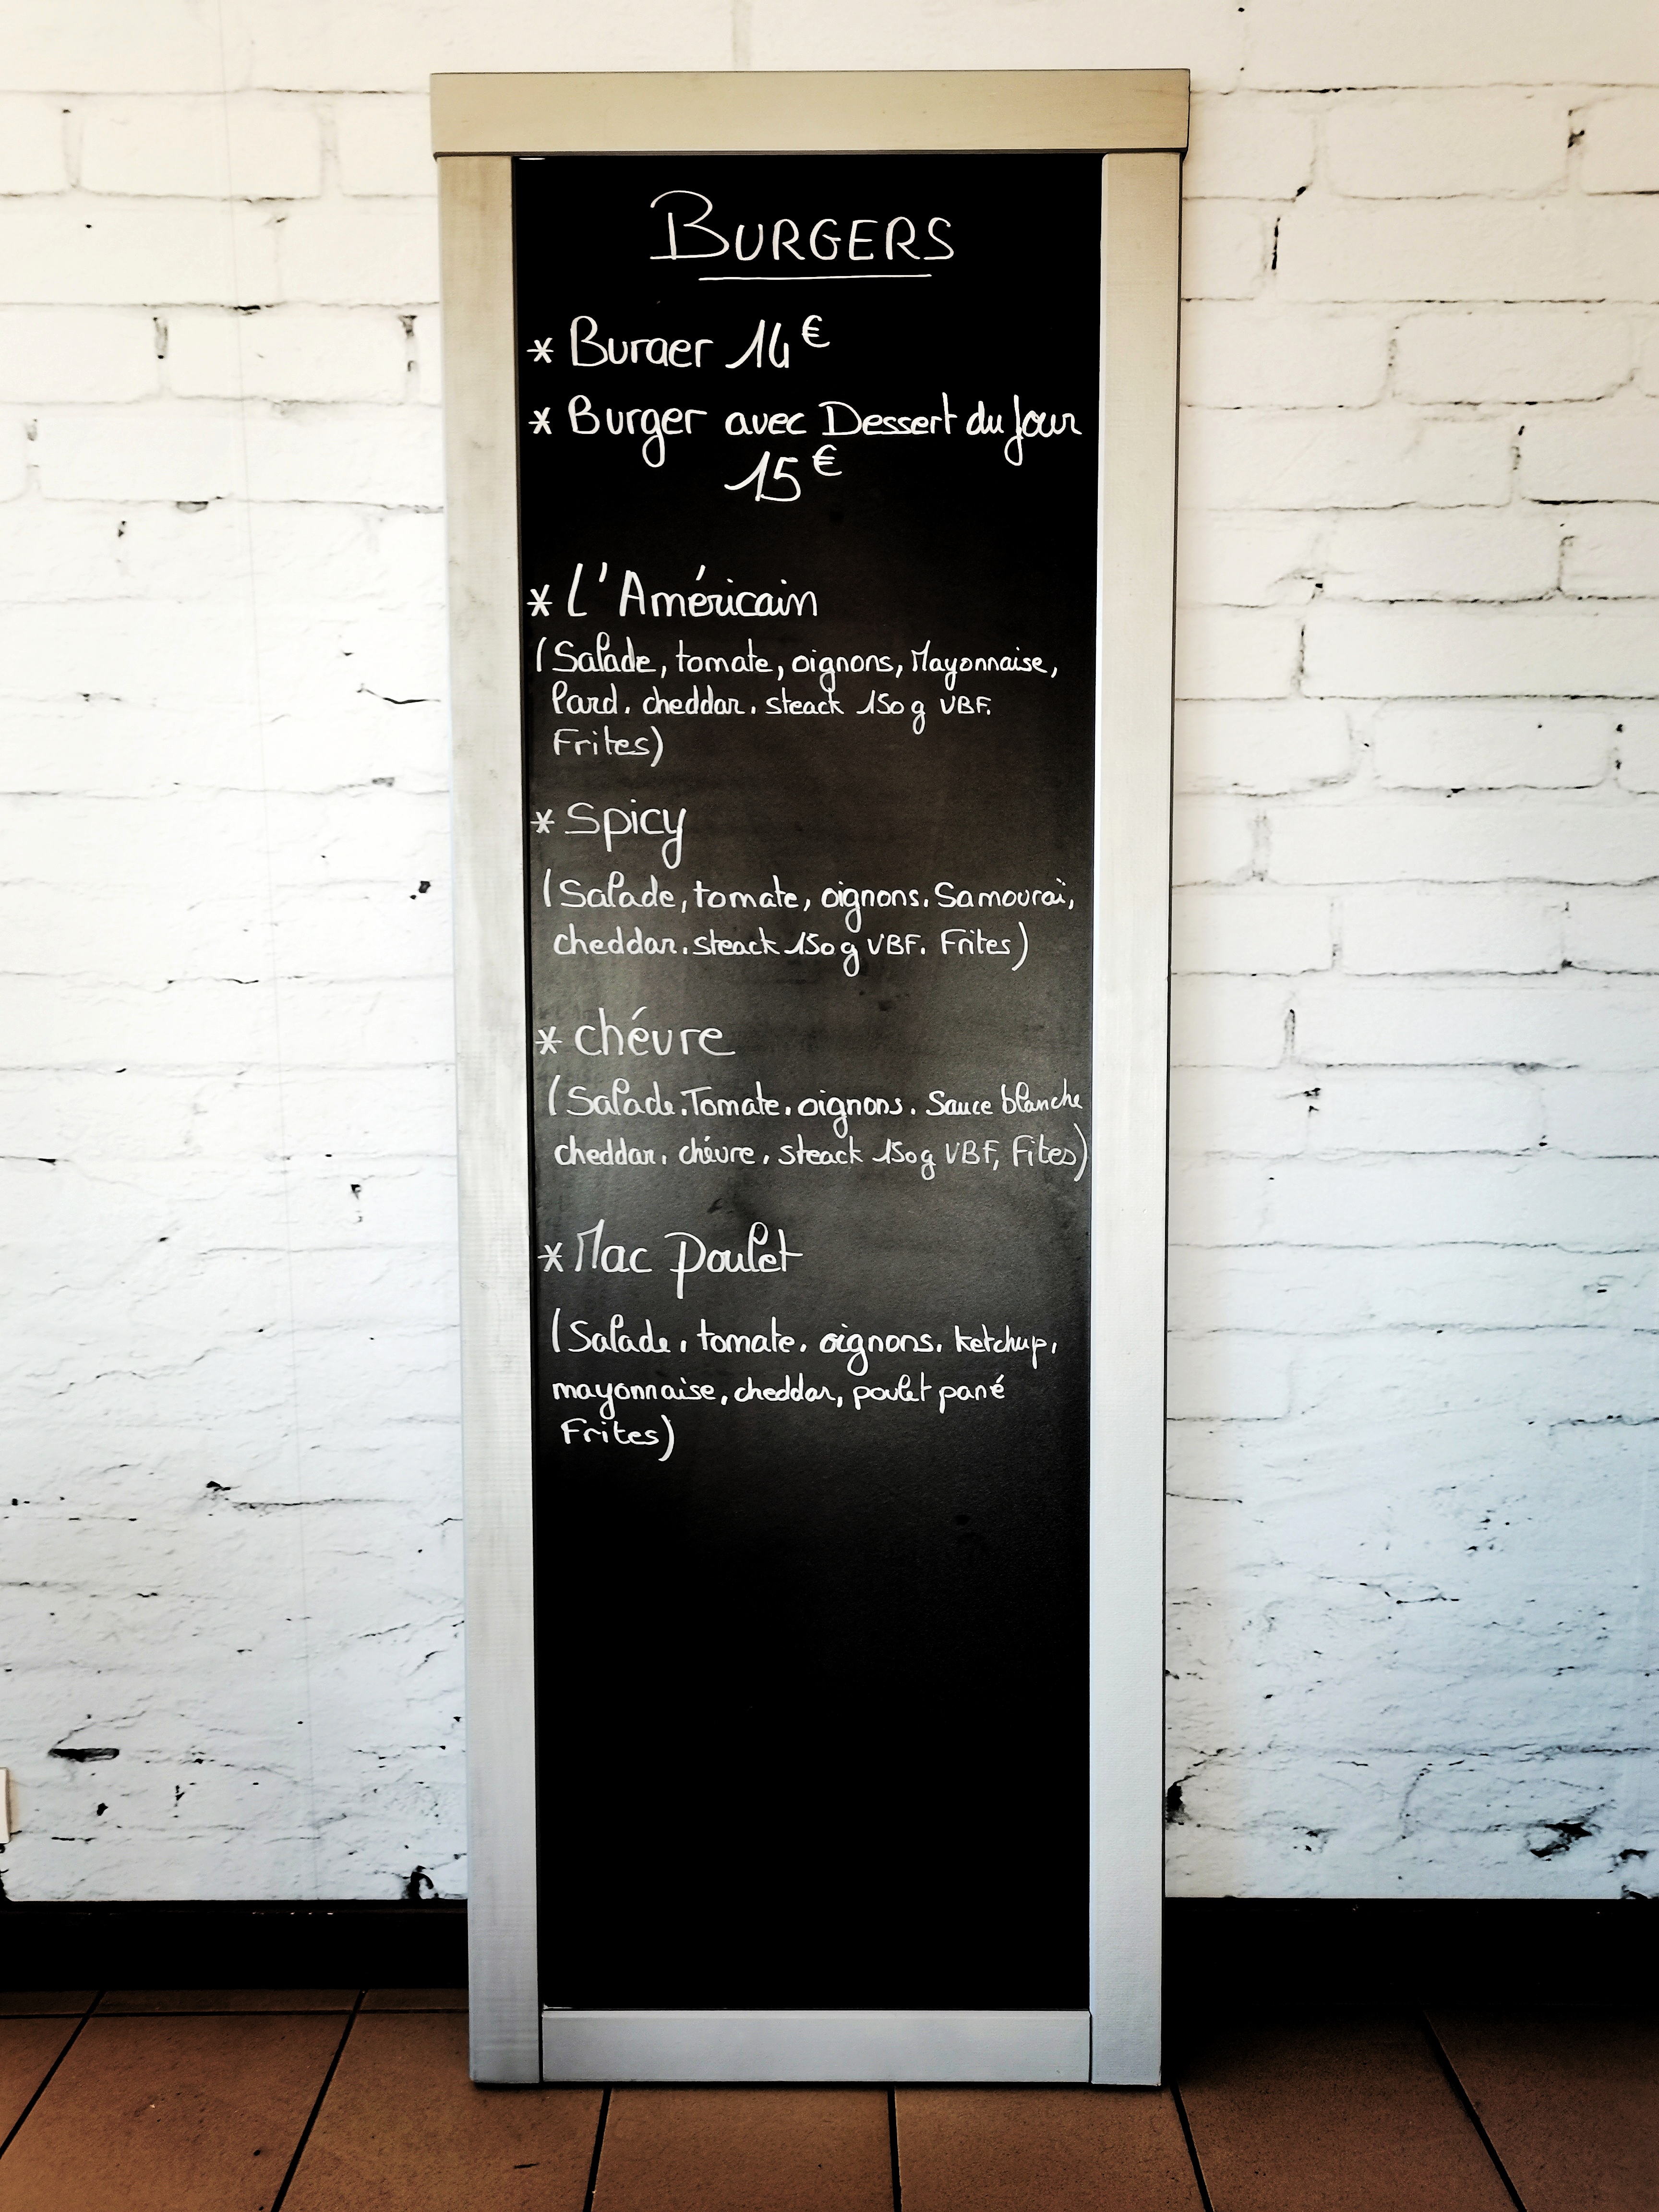 BURGERS
* Burger 14€
* Burger avec Dessert du Jour
15€
* L'Américain
(Salade, tomate, oignons, Mayonnaise,
Lard, cheddar, steack 150g VBF,
Frites)
* Spicy
(Salade, tomate, oignons, Samouraï,
cheddar, steack 150g VBF, Frites)
* chévre
(Salade, Tomate, oignons, Sauce blanche
cheddar, chévre, steack 150g VBF, Fites)
* Mac Poulet
(Salade, tomate, oignons, ketchup,
mayonnaise, cheddar, poulet pané
Frites)